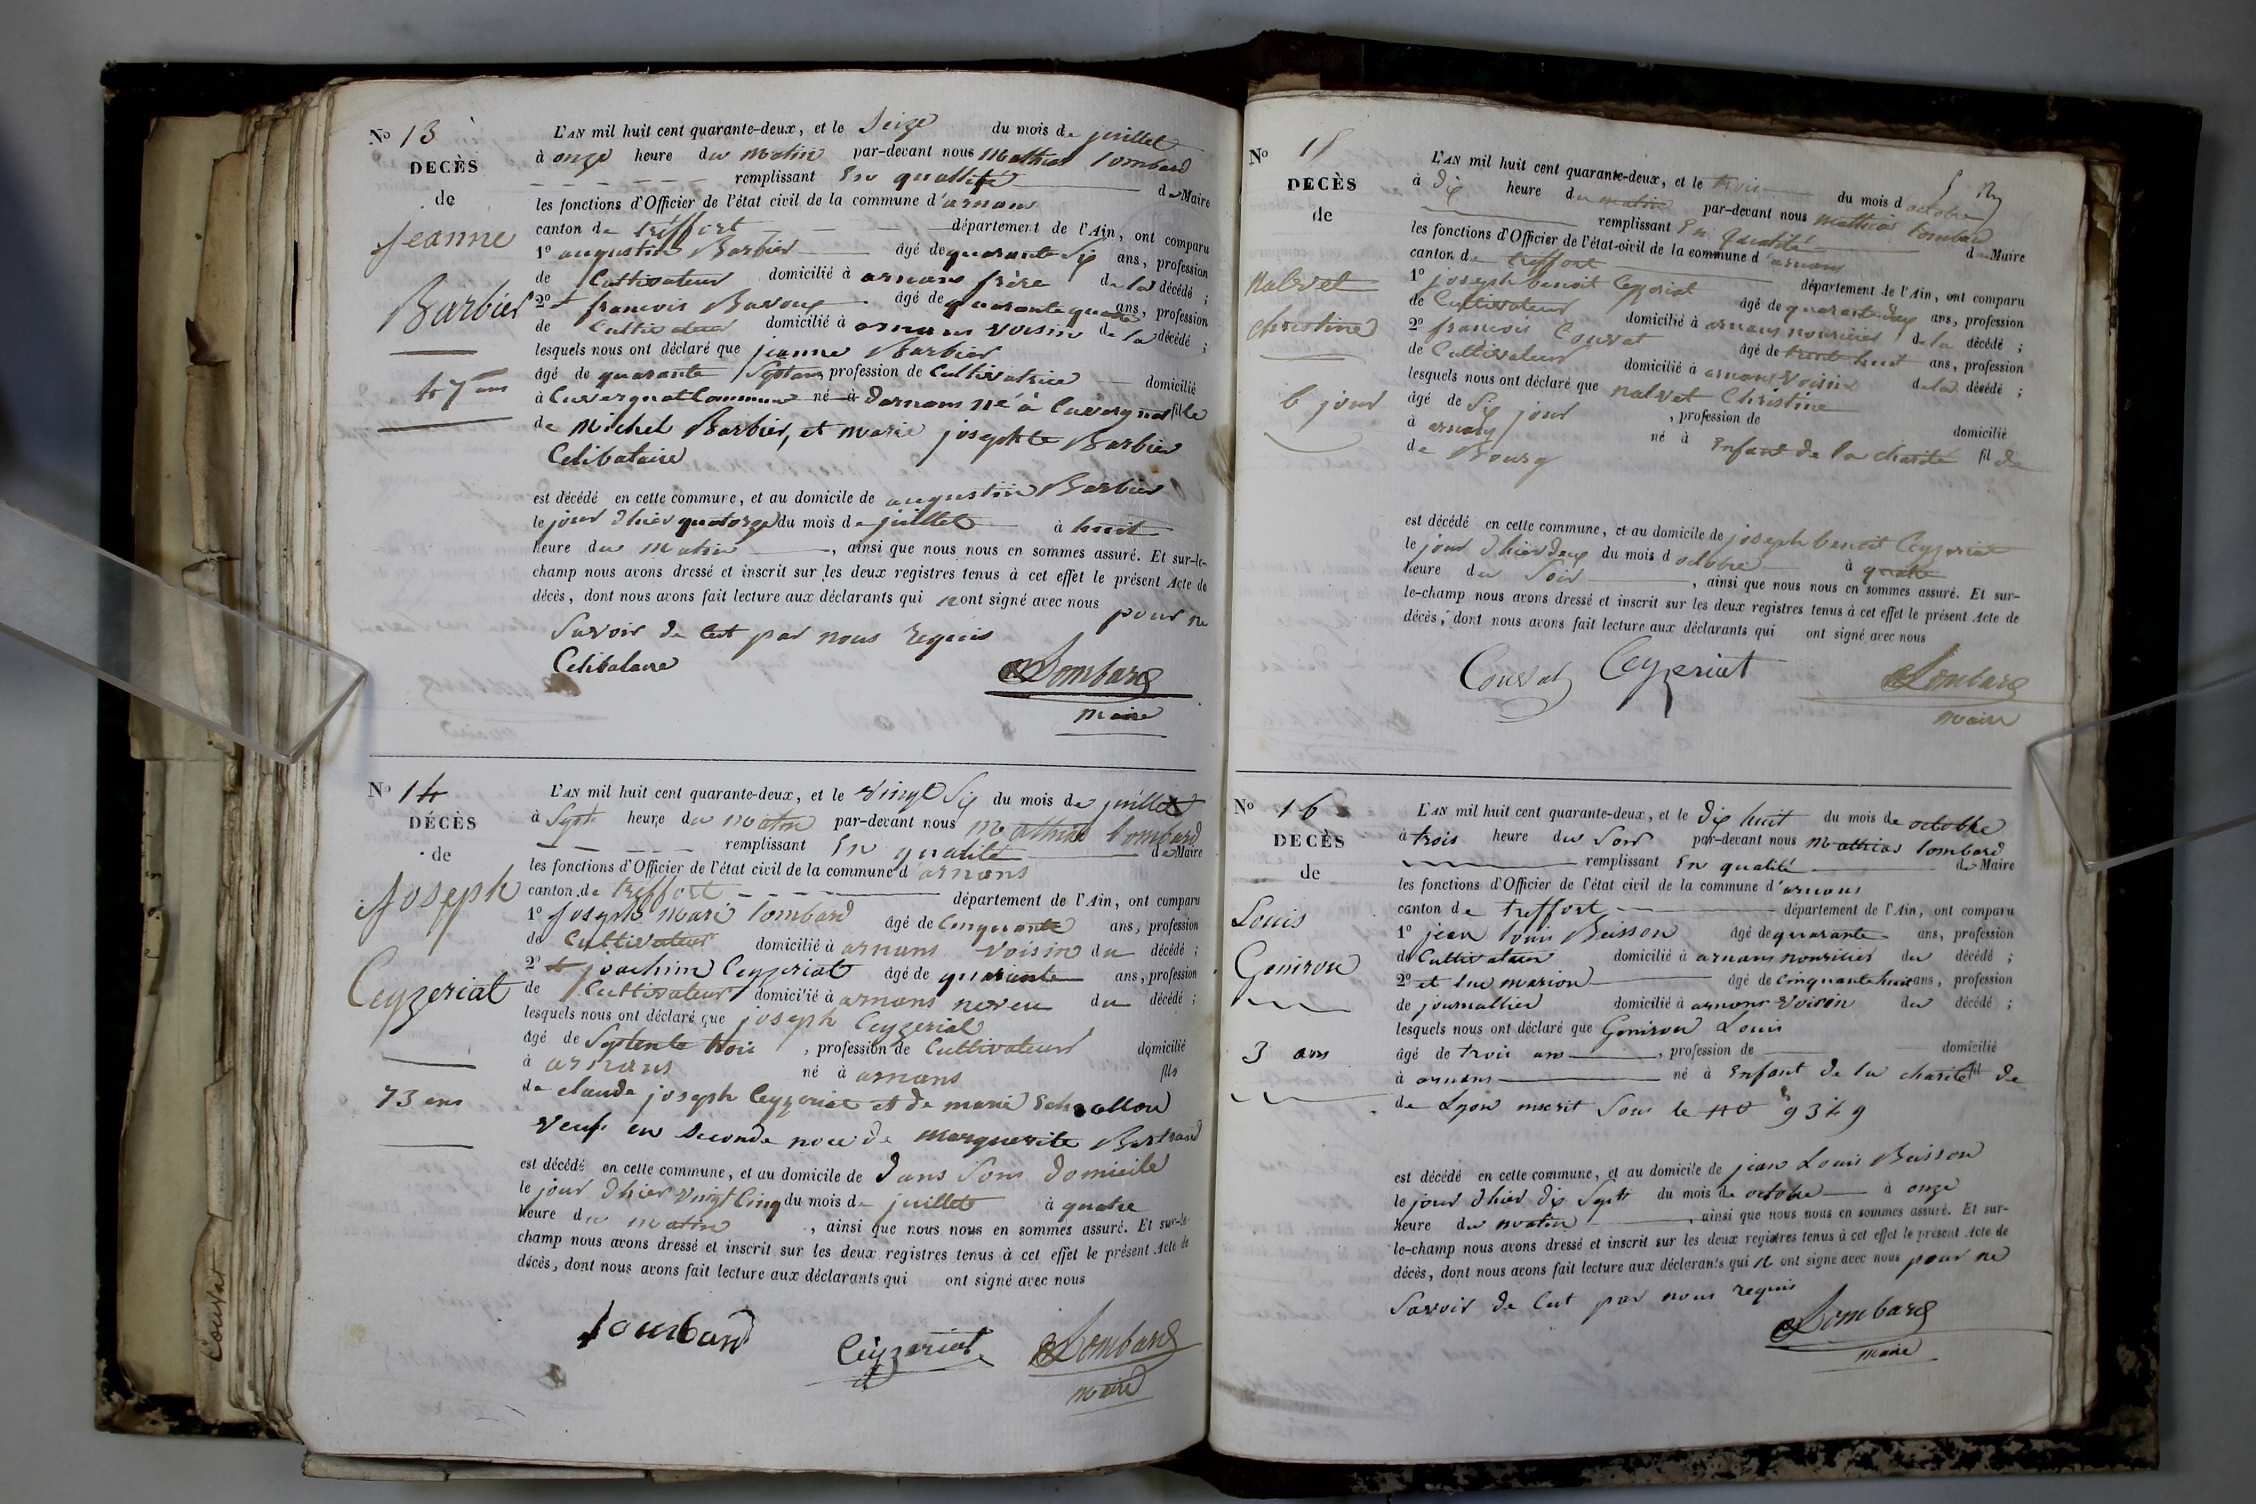 No 13
DECÈS
de
jeanne
Barbier
47 ans
L'AN mil huit cent quarante-deux, et le Seize du mois de juillet
à onze heure du matin par-devant nous Mathias lombard
remplissant En qualité de Maire
les fonctions d'Officier de l'état civil de la commune d'arnans
canton de treffort département de l'Ain, ont comparu
1º augustin Barbier âgé de quarante Six ans, profession
de Cultivateur domicilié à arnans frère de la décédé ;
2º et francois Bavoux âgé de quarante quatre ans, profession
de Cultivateur domicilié à arnans voisin de la décédé ;
lesquels nous ont déclaré que jeanne Barbier
âgé de quarante Sept ans profession de Cultivatrice domicilié
à Cuvergnat Commune né à darnans né à Cuvergnat fille
de Michel Barbier, et marie josephte Barbier
Celibataire
est décédé en cette commune, et au domicile de augustin Barbier
le jour d'hier quatorze du mois de juillet à huit
heure du matin , ainsi que nous nous en sommes assuré. Et sur-le-
champ nous avons dressé et inscrit sur les deux registres tenus à cet effet le présent Acte de
décès, dont nous avons fait lecture aux déclarants qui n ont signé avec nous pour ne
Savoir de Cest par nous requis
Celibataire
Lombard
maire
No 14
DÉCÈS
de
Joseph
Ceyzeriat
73 ans
L'AN mil huit cent quarante-deux, et le vingt Six du mois de juillet
à Sept heure du matin par-devant nous Mathias lombard
remplissant En qualité de Maire
les fonctions d'Officier de l'état civil de la commune d arnans
canton de treffort département de l'Ain, ont comparu
1º joseph Marie lombard âgé de Cinquante ans, profession
de Cultivateur domicilié à arnans voisin du décédé ;
2º et joachim Ceyzeriat âgé de quarante ans, profession
de Cultivateur domicilié à arnans neveu du décédé ;
lesquels nous ont déclaré que joseph Ceyzeriat
âgé de Septente trois , profession de Cultivateur domicilié
à arnans né à arnans fils
de claude joseph Ceyzeriat et de marie
veuf en Seconde noce de marguerite Bertrand
est décédé en cette commune, et au domicile de dans Son domicile
le jour d'hier vingt Cinq du mois de juillet à quatre
heure du matin , ainsi que nous nous en sommes assuré. Et sur-le-
champ nous avons dressé et inscrit sur les deux registres tenus à cet effet le présent Acte de
décès, dont nous avons fait lecture aux déclarants qui ont signé avec nous
Lombard Ceyzeriat Lombard
maire
Couvat
No 15
DECÈS
de
Nalvet
christine
6 jour
L'AN mil huit cent quarante-deux, et le trois du mois d octobre
à dix heure du matin par-devant nous Mathias lombard
remplissant En qualité de Maire
les fonctions d'Officier de l'état-civil de la commune d'arnans
canton de treffort département de l'Ain, ont comparu
1º joseph benoit Ceyzeriat âgé de quarante deux ans, profession
de Cultivateur domicilié à arnans nouricier de la décédé ;
2º francois Couvat âgé de trente huit ans, profession
de Cultivateur domicilié à arnans voisin de la décédé ;
lesquels nous ont déclaré que Nalvet Christine
âgé de Six jour , profession de domicilié
à arnans né à Enfant de la charité fil de
de Bourg
est décédé en cette commune, et au domicile de joseph benoit Ceyzeriat
le jour d'hier deux du mois d octobre à quatre
heure du Soir , ainsi que nous nous en sommes assuré. Et sur-
le-champ nous avons dressé et inscrit sur les deux registres tenus à cet effet le présent Acte de
décès, dont nous avons fait lecture aux déclarants qui ont signé avec nous
Couvat Ceyzeriat Lombard
maire
No 16
DECÈS
de
Louis
Gonirou
3 ans
L'AN mil huit cent quarante-deux, et le dix huit du mois de octobre
à trois heure du Soir par-devant nous Mathias lombard
remplissant En qualité de Maire
les fonctions d'Officier de l'état civil de la commune d'arnans
canton de treffort département de l'Ain, ont comparu
1º jean louis Buisson âgé de quarante ans, profession
de Cultivateur domicilié à arnans nouricier du décédé ;
2º et luc marion âgé de Cinquante huit ans, profession
de journallier domicilié à arnans voisin du décédé ;
lesquels nous ont déclaré que Gonirou Louis
âgé de trois ans , profession de domicilié
à arnans né à Enfant de la charité fil de
de Lyon inscrit Sous le No 9349
est décédé en cette commune, et au domicile de jean Louis Buisson
le jour d'hier dix Sept du mois de octobre à onze
heure du matin , ainsi que nous nous en sommes assuré. Et sur-
le-champ nous avons dressé et inscrit sur les deux registres tenus à cet effet le présent Acte de
décès, dont nous avons fait lecture aux déclarants qui n ont signé avec nous pour ne
Savoir de Cest par nous requis
Lombard
maire